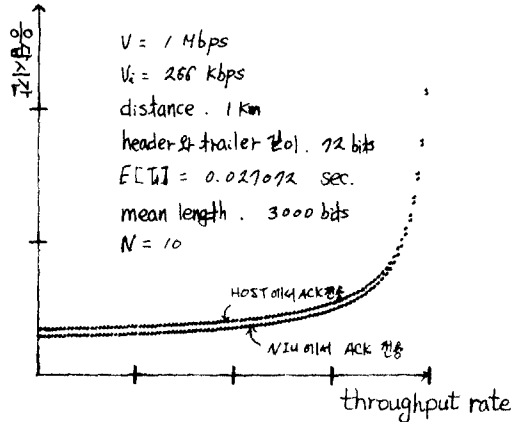 V = 1 Mbps
Vi = 256 Kbps
distance . 1 Km
header와 trailer 길이 . 72 bits
E[Ti] = 0.027072 sec.
mean length . 3000 bits
N = 10
HOST에서 ACK 전송
NIU에서 ACK 전송
throughput rate